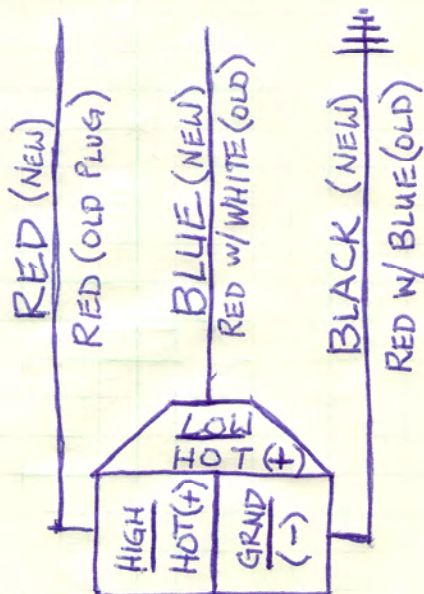 RED (NEW)
RED (OLD PLUG)
BLUE (NEW)
RED W/ WHITE (OLD)
BLACK (NEW)
RED W/ BLUE (OLD)
LOW
HOT (+)
HIGH
HOT(+)
GRND
(-)